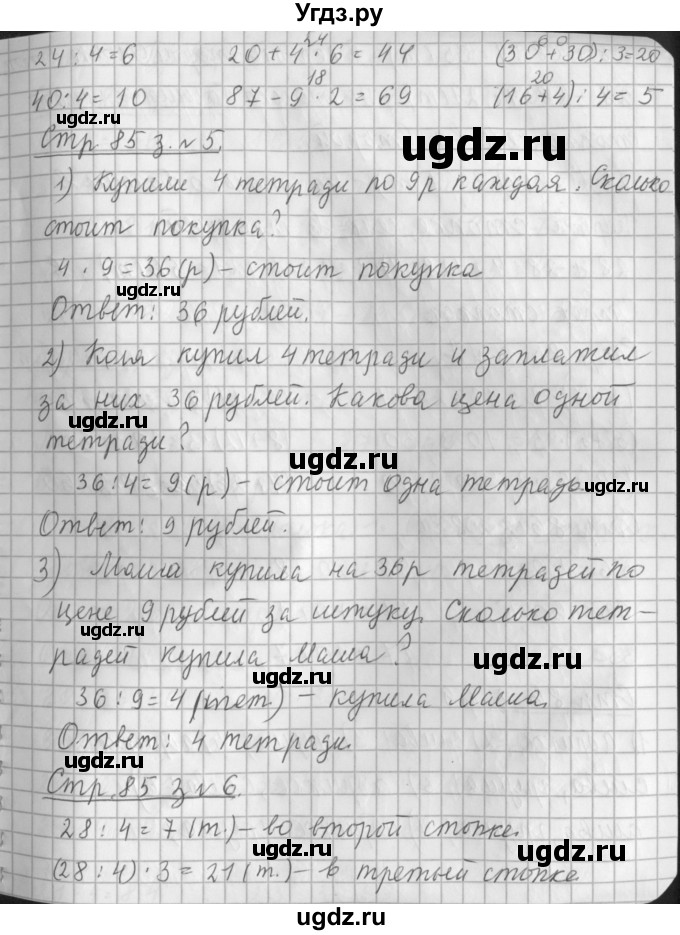 Угдз.ру
24 : 4 = 6   20 + 4 · 6 = 44   (30 + 30) : 3 = 20
24   60
40 : 4 = 10   87 - 9 · 2 = 69   (16 + 4) : 4 = 5
18   20
Стр. 85 з. №5.
ugdz.ru
ugdz.ru
1) Купили 4 тетради по 9р каждая. Сколько
ugdz.ru
стоит покупка?
4 · 9 = 36 (р) - стоит покупка
ugdz.ru
Ответ: 36 рублей.
2) Коля купил 4 тетради и заплатил
за них 36 рублей. Какова цена одной
ugdz.ru
ugdz.ru
тетради?
ugdz.ru
36 : 4 = 9 (р) - стоит одна тетрадь.
ugdz.ru
Ответ: 9 рублей.
ugdz.ru
3) Маша купила на 36р тетрадей по
цене 9 рублей за штуку. Сколько тет-
ugdz.ru
радей купила Маша?
ugdz.ru
36 : 9 = 4 (тет.) - купила Маша.
Ответ: 4 тетради.
ugdz.ru
Стр. 85 з №6.
28 : 4 = 7 (т.) - во второй стопке.
ugdz.ru
ugdz.ru
(28 : 4) · 3 = 21 (т.) - в третьей стопке.
ugdz.ru